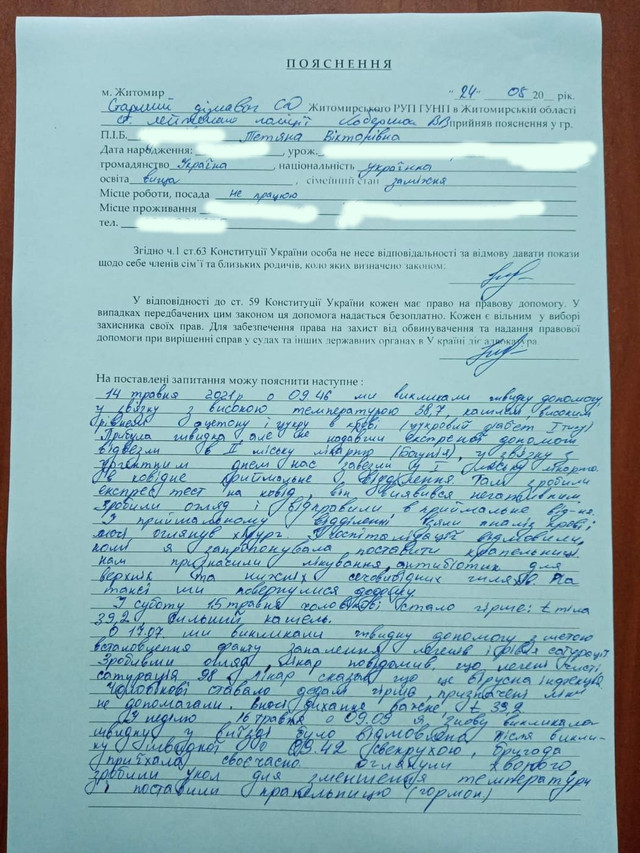 ПОЯСНЕННЯ
м. Житомир "24" 08 20__ рік.
Старший дізнавач СД Житомирського РУП ГУНП в Житомирській області
ст. лейтенант поліції В.В прийняв пояснення у гр.
П.І.Б. Тетяна Вікторівна
Дата народження: , урож.
громадянство Україна , національність українка
освіта вища , сімейний стан заміжня
Місце роботи, посада не працюю
Місце проживання
тел.
Згідно ч.1 ст.63 Конституції України особа не несе відповідальності за відмову давати покази
щодо себе членів сім'ї та близьких родичів, коло яких визначено законом.
У відповідності до ст. 59 Конституції України кожен має право на правову допомогу. У
випадках передбачених цим законом ця допомога надається безоплатно. Кожен є вільним у виборі
захисника своїх прав. Для забезпечення права на захист від обвинувачення та надання правової
допомоги при вирішенні справ у судах та інших державних органах в Україні діє адвокатура
На поставлені запитання можу пояснити наступне :
14 травня 2021р о 09.46 ми викликали швидку допомогу
у звязку з високою температурою 38,7, кашлем, високим
рівнем ацетону і цукру в крові (цукровий діабет І типу)
Прибула швидка, але не надавши екстреної допомоги
відвезли в ІІ міську лікарню (Богунія), у звязку з
ургентним днем нас завезли у І міську лікарню
в ковідне приймальне відділення. Там зробили
експрес тест на ковід, він виявився негативним,
зробили огляд і відправили в приймальне від-ня.
З приймальному відділенні взяли аналіз крові,
оглянув хірург. З госпіталізації відмовили,
коли я запропонувала поставити крапельниці.
нам призначили лікування, антибіотик для
верхніх та нижніх сечовивідних шляхів. На
таксі ми повернулися додому.
У суботу 15 травня чоловікові стало гірше: t тіла
39,2 сильний кашель.
О 17.07 ми викликали швидку допомогу з метою
встановлення факту запалення легенів і рівня сатурації
Зробивши огляд, лікар повідомив, що легені чисті,
сатурація 98 і лікар сказав що це вірусна інфекція
Чоловікові ставало дедалі гірше, призначені ліки
не допомагали. Вночі дихання важке t 39,2
У неділю 16 травня о 09.09 я знову викликала
швидку у виїзді було відмовлено після викли-
ку швидкої о 09.42 свекрухою, бригада
приїхала своєчасно оглянули хворого,
зробили укол для зменшення температури
і поставили крапельницю (гормон)